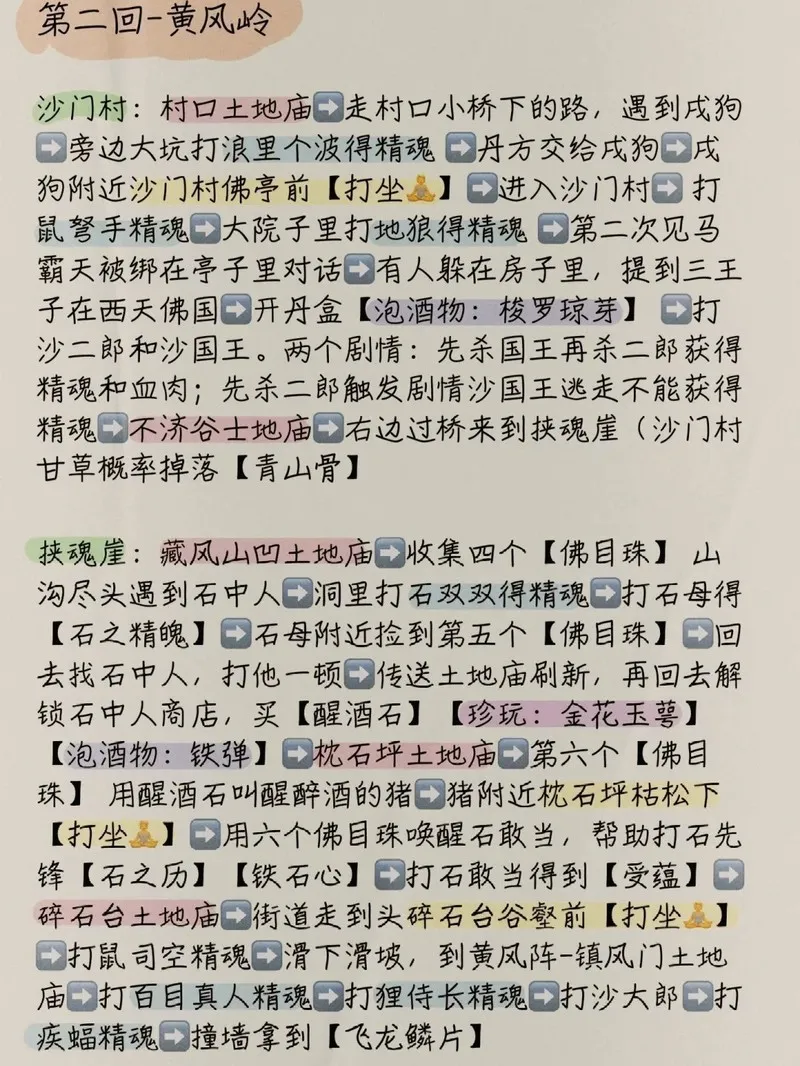 第二回-黄风岭
沙门村：村口土地庙➡️走村口小桥下的路，遇到戌狗
➡️旁边大坑打浪里个波得精魂 ➡️丹方交给戌狗➡️戌
狗附近沙门村佛亭前【打坐🧘】➡️进入沙门村➡️ 打
鼠弩手精魂➡️大院子里打地狼得精魂 ➡️第二次见马
霸天被绑在亭子里对话➡️有人躲在房子里，提到三王
子在西天佛国➡️开丹盒【泡酒物：梭罗琼芽】 ➡️打
沙二郎和沙国王。两个剧情：先杀国王再杀二郎获得
精魂和血肉；先杀二郎触发剧情沙国王逃走不能获得
精魂➡️不济谷士地庙➡️右边过桥来到挟魂崖（沙门村
甘草概率掉落【青山骨】
挟魂崖：藏风山凹土地庙➡️收集四个【佛目珠】 山
沟尽头遇到石中人➡️洞里打石双双得精魂➡️打石母得
【石之精魄】➡️石母附近捡到第五个【佛目珠】➡️回
去找石中人，打他一顿➡️传送土地庙刷新，再回去解
锁石中人商店，买【醒酒石】【珍玩：金花玉萼】
【泡酒物：铁弹】➡️枕石坪土地庙➡️第六个【佛目
珠】 用醒酒石叫醒醉酒的猪➡️猪附近枕石坪枯松下
【打坐🧘】➡️用六个佛目珠唤醒石敢当，帮助打石先
锋【石之历】【铁石心】➡️打石敢当得到【受蕴】➡️
碎石台土地庙➡️街道走到头碎石台谷壑前【打坐🧘】
➡️打鼠司空精魂➡️滑下滑坡，到黄风阵-镇风门土地
庙➡️打百目真人精魂➡️打狸侍长精魂➡️打沙大郎➡️打
疾蝠精魂➡️撞墙拿到【飞龙鳞片】